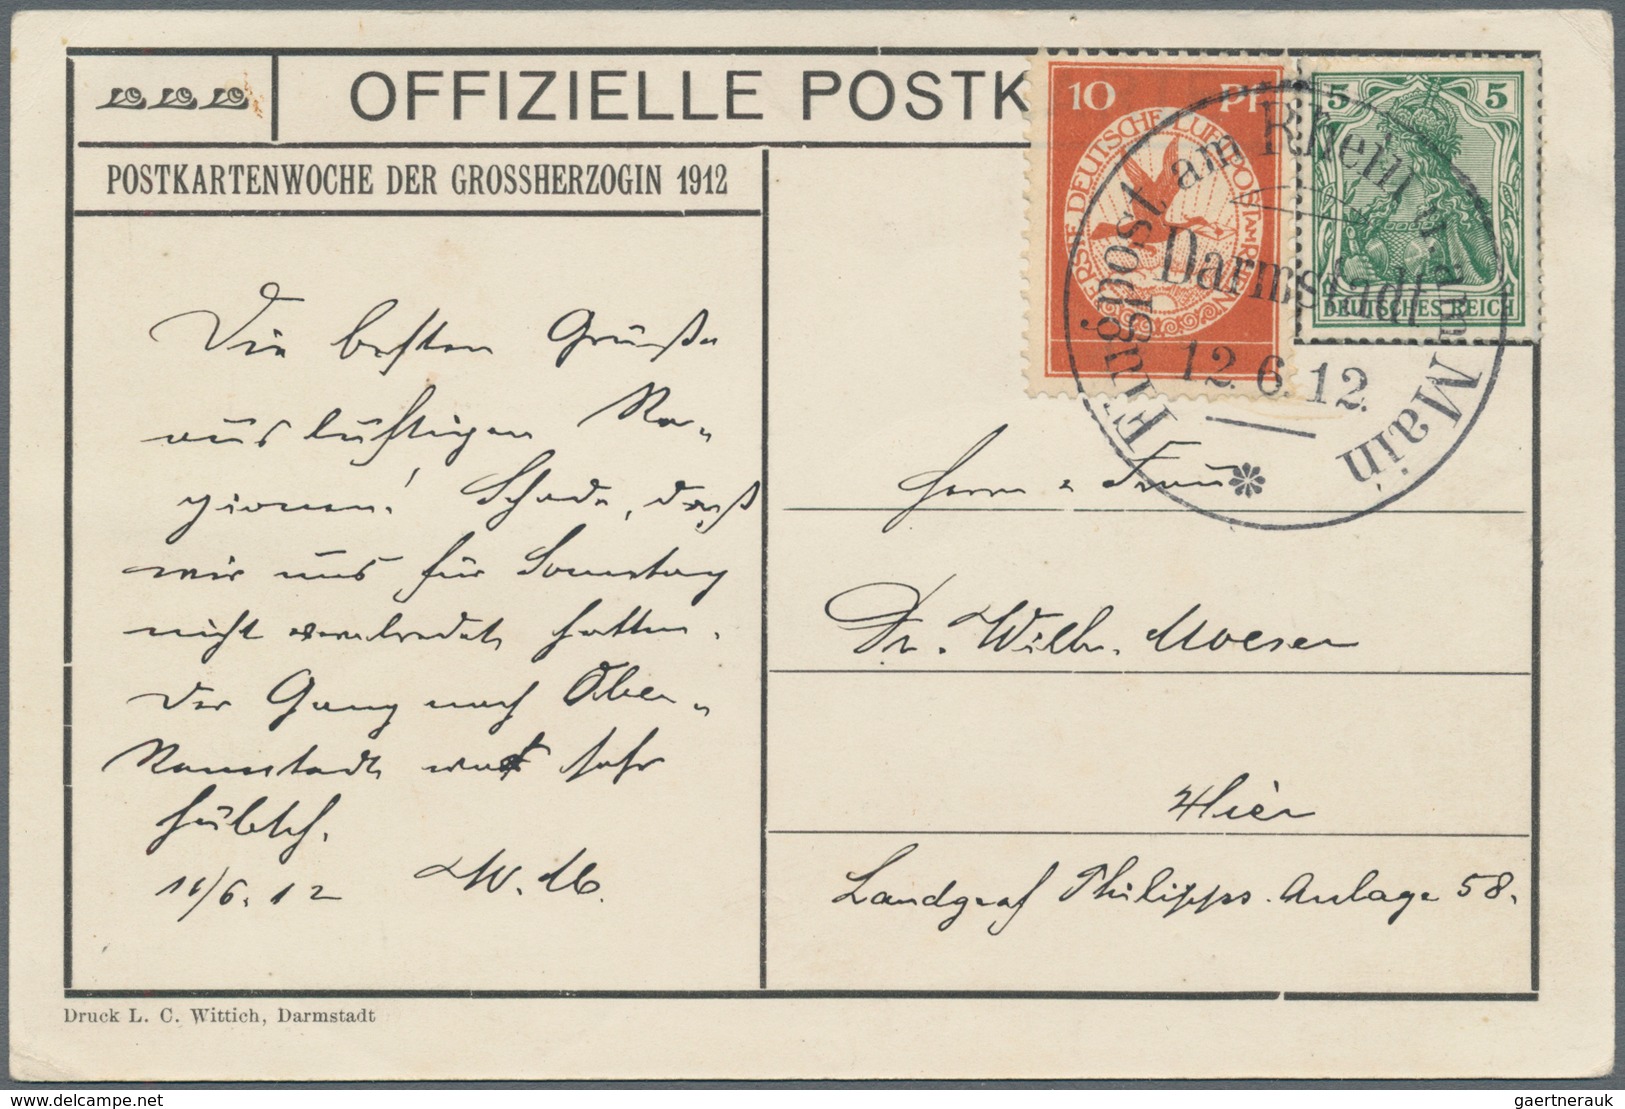 OFFIZIELLE POSTK
POSTKARTENWOCHE DER GROSSHERZOGIN 1912
10 Pf
ERSTE DEUTSCHE LUFTPOST AM RHEIN
5 5
DEUTSCHES REICH
Flugpost am Rhein u. am Main
Darmstadt
12.6.12.
Die besten Grüße
aus luftigen Re-
gionen! Schade, daß
wir uns für Sonntag
nicht verabredet hatten.
Der Gang nach Ober-
Ramstadt war sehr
hübsch.
11/6.12 W. M.
Herrn & Frau
Dr. Wilh. Moeser
Hier
Landgraf Philipps. Anlage 58.
Druck L. C. Wittich, Darmstadt
delcampe.net
gaertnerauk